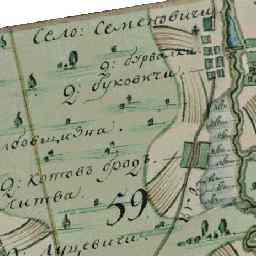 Село: Семеновичи
Д: бурвалки
Д: буковичи.
Д: Котовъ бродъ.
Литва.
59
Д: Луцевичи.